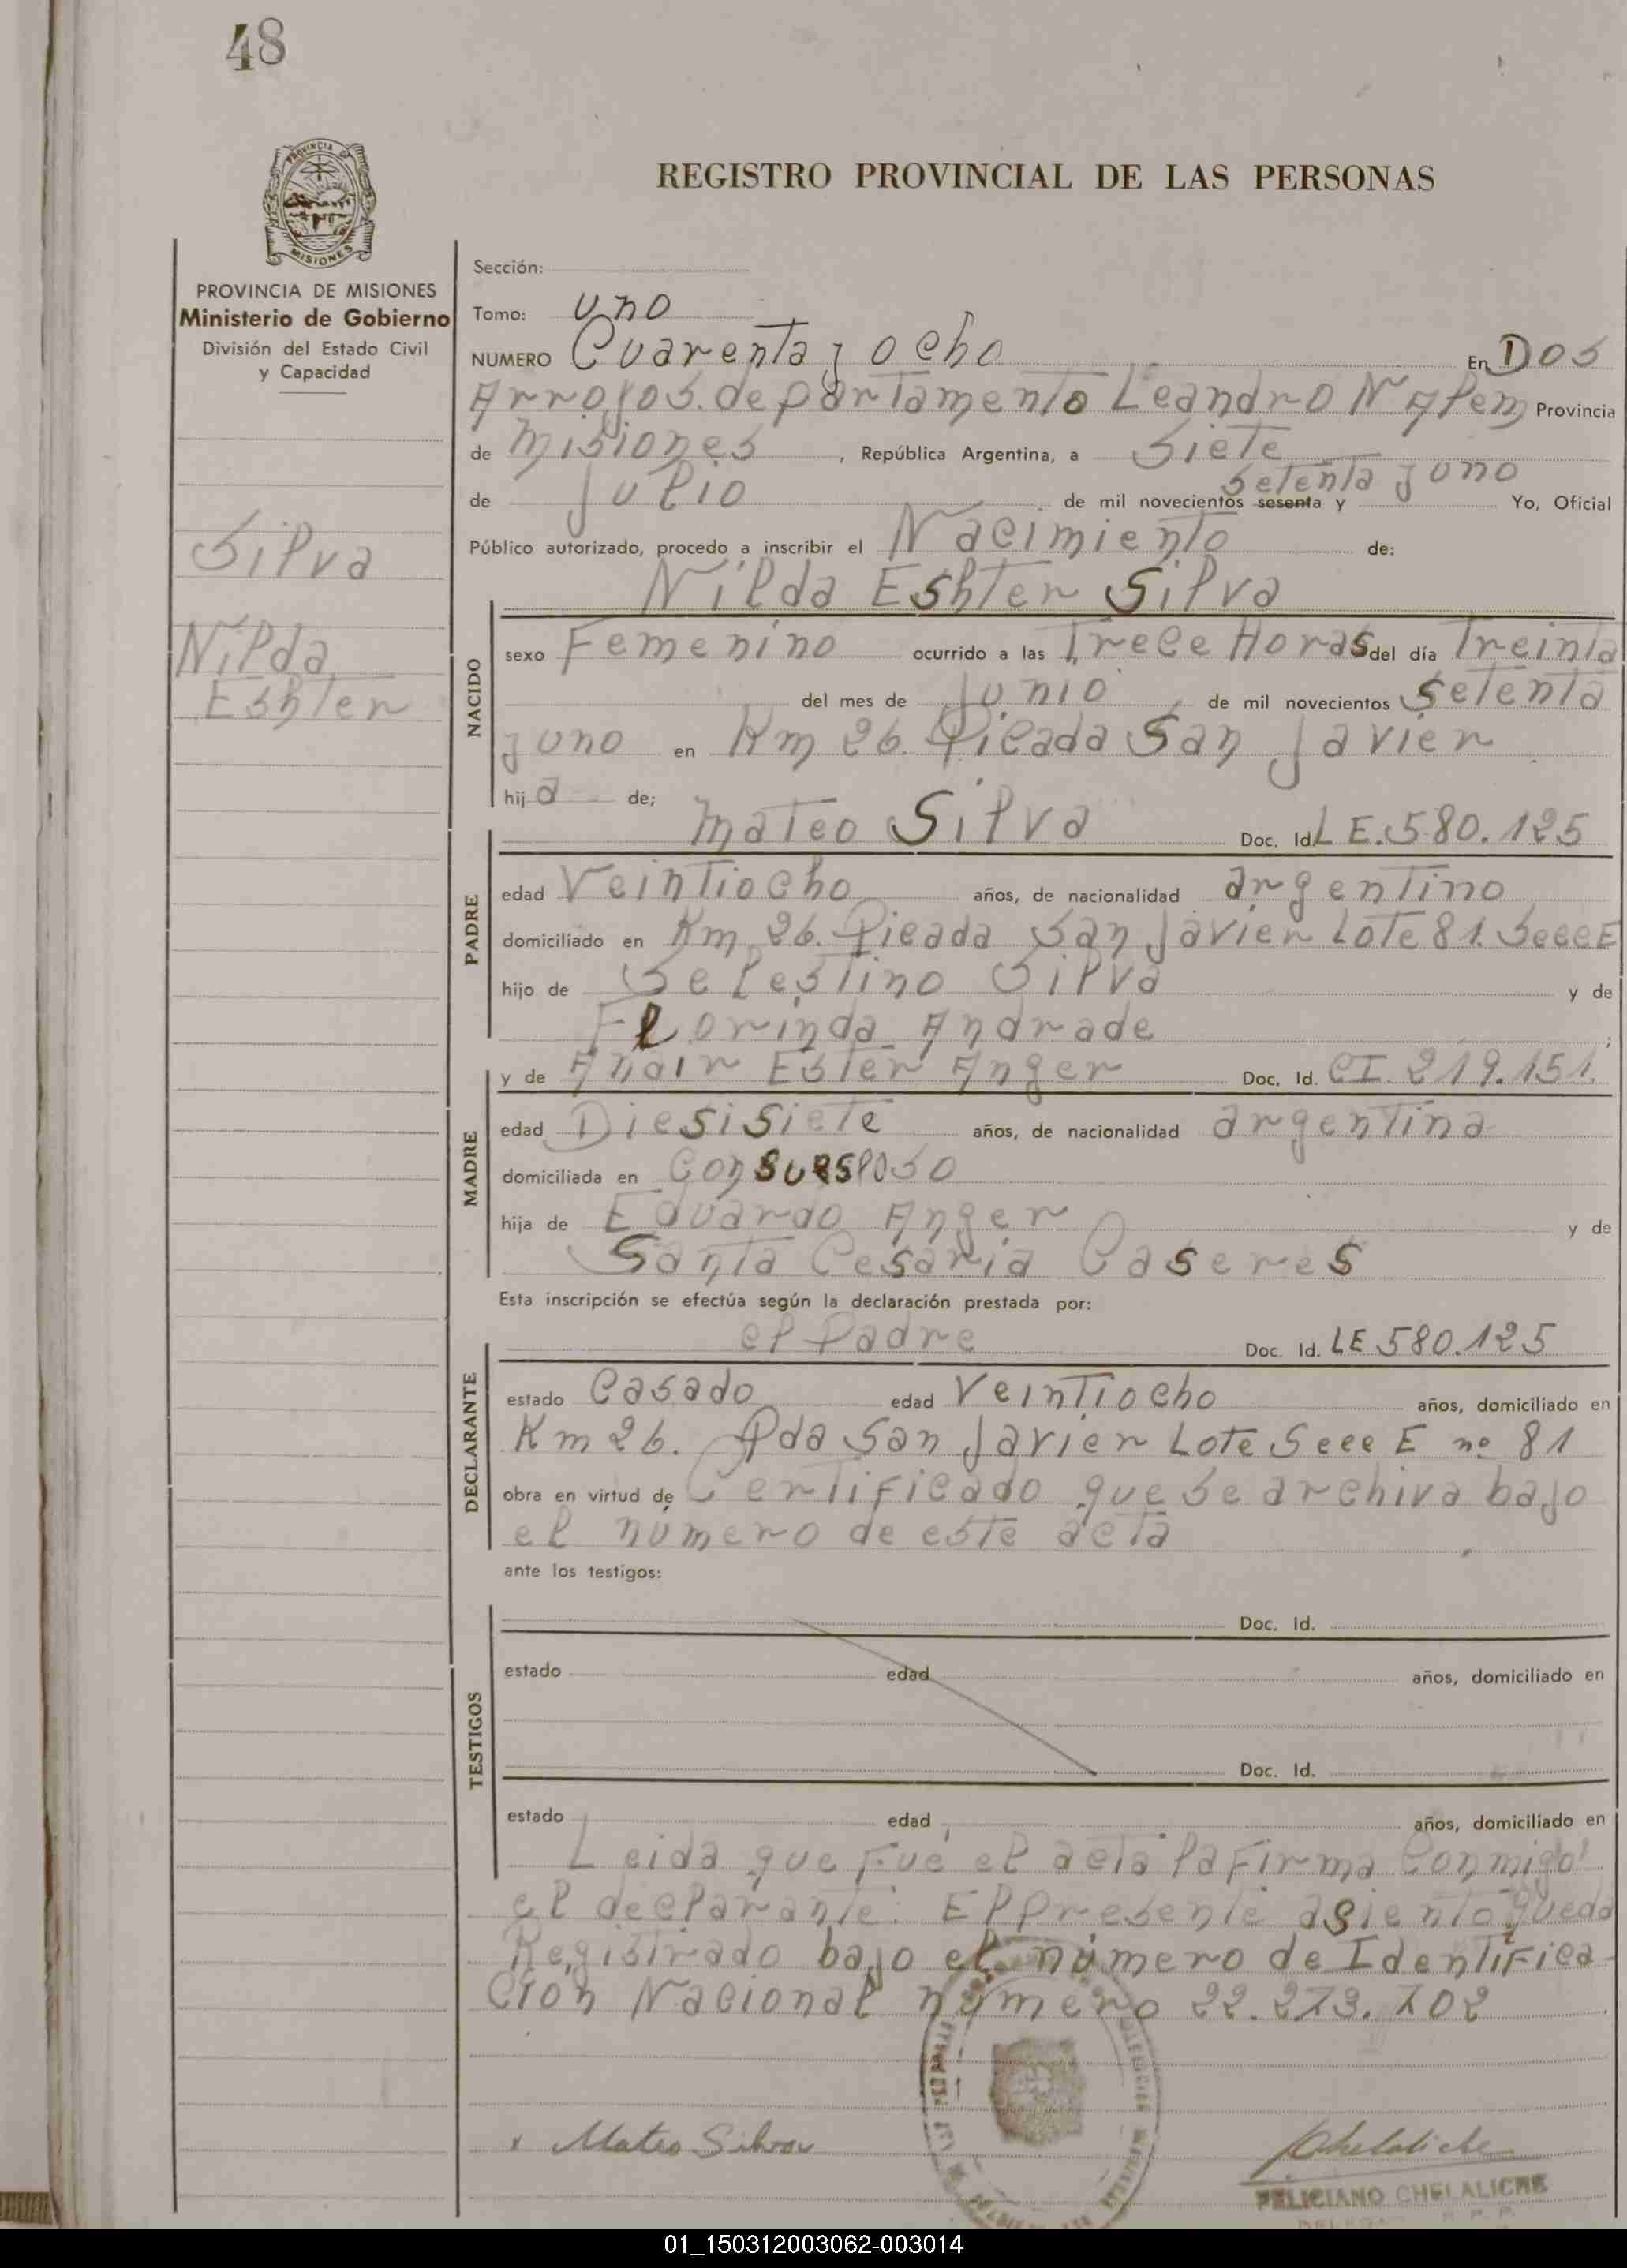 48
PROVINCIA
MISIONES
REGISTRO PROVINCIAL DE LAS PERSONAS
PROVINCIA DE MISIONES
Ministerio de Gobierno
División del Estado Civil
y Capacidad
Silva
Nilda
Eshter
Sección:
Tomo: uno
NUMERO Cuarenta y ocho En Dos
Arroyos. departamento Leandro N Alem Provincia
de Misiones, República Argentina, a Siete
de Julio de mil novecientos sesenta y setenta y uno Yo, Oficial
Público autorizado, procedo a inscribir el Nacimiento de:
Nilda Eshter Silva
NACIDO
sexo Femenino ocurrido a las Trece Horas del día Treinta
del mes de Junio de mil novecientos Setenta
y uno en Km 26. Picada San Javier
hija de;
Mateo Silva Doc. Id. L E. 580.125
PADRE
edad Veintiocho años, de nacionalidad argentino
domiciliado en Km 26. Picada San Javier Lote 81. Secc E
hijo de Selestino Silva y de
Florinda Andrade;
y de Anair Ester Anger Doc. Id. CI. 219.151.
MADRE
edad Diesisiete años, de nacionalidad argentina
domiciliada en Con su esposo
hija de Eduardo Anger y de
Santa Cesaria Caseres
Esta inscripción se efectúa según la declaración prestada por:
el Padre Doc. Id. LE 580.125
DECLARANTE
estado Casado edad Veintiocho años, domiciliado en
Km 26. Pda San Javier Lote Secc E nº 81
obra en virtud de Certificado que se archiva bajo
el número de este acta
ante los testigos:
TESTIGOS
Doc. Id.
estado edad años, domiciliado en
Doc. Id.
estado edad años, domiciliado en
Leida que fué el acta la firma Conmigo
el declarante. El presente asiento queda
Registrado bajo el número de Identifica
ción Nacional número 22.273.702
x Mateo Silva Chelaliche
FELICIANO CHELALICHE
01_150312003062-003014